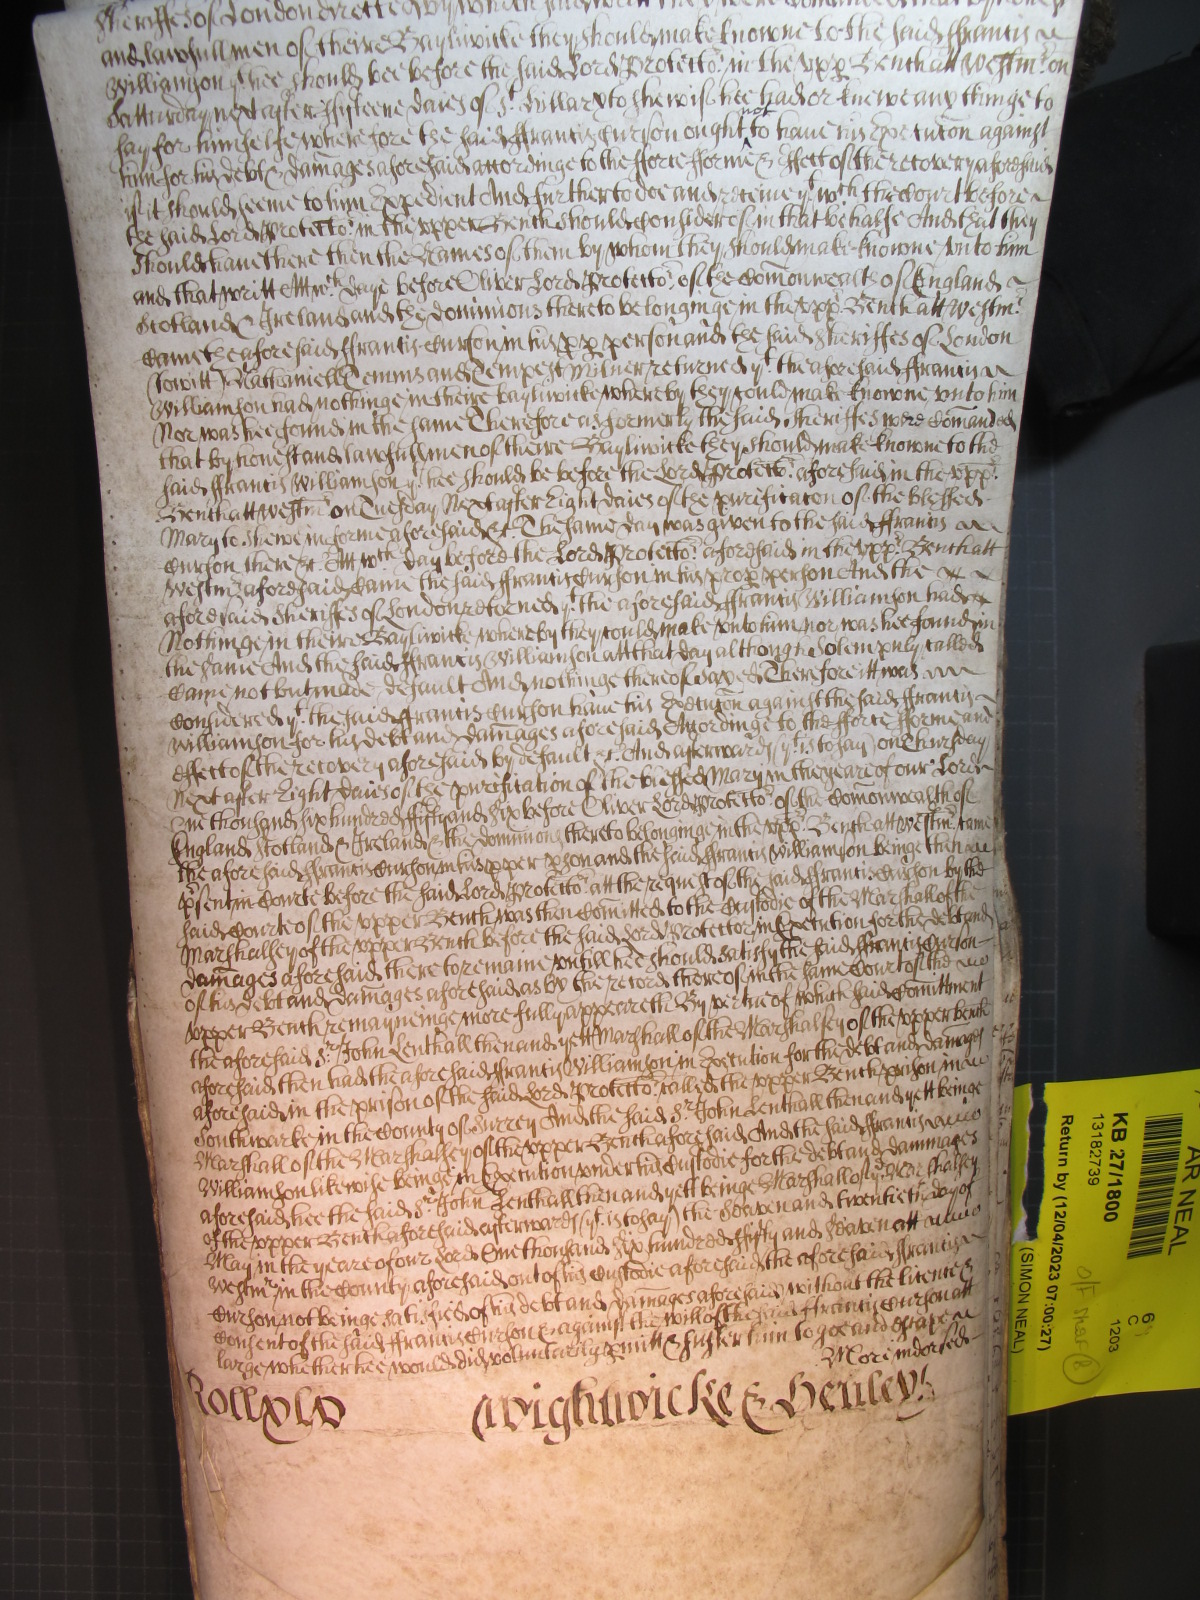 Sheriffes of London
and lawfull men of theire Bayliwicke they should make knowne to the said Francis
Williamson yt. hee should bee before the said Lord Protector. in the vpp. Bench att Westmr. on
Satturday next after fifteene daies of St. Hillary to shew if hee had or knew any thinge to
say for himselfe wherefore the said Francis Curson ought not to have his Execucon against
him for his debt & damages aforesaid accordinge to the force forme & effect of the recovery aforesaid
if it should seeme to him Expedient And further to doe and receive yt. wch the Court before
the said Lord Protector. in the vpper Bench should Consider of in that behalfe And that they
should have there then the Names of them by whom they should make knowne vnto him
and that writt Att wch. daye before Oliver Lord Protector. of the Comonwealth of England
Scotland & Ireland and the dominions thereto belonginge in the vpp. Bench att Westmr.
Came the aforesaid Francis Curson in his pp person and the said Sheriffes of London
(to witt) Nathaniell Temms and Tempest Milner returned yt. the aforesaid Francis
Williamson had nothinge in theire bayliwicke whereby they could make knowne vnto him
Nor was hee found in the same Therefore as formerly the said Sheriffes were Comanded
that by honest and lawfull men of theire Bayliwicke they should make knowne to the
said Francis Williamson yt. hee should be before the Lord Protector. aforesaid in the vpp.
Bench att Westmr. on Tuesday Next after Eight daies of the purificacon of the blessed
Mary to shewe in forme aforesaid &c. The same day was given to the said Francis
Curson there &c. Att wch day before the Lord Protector. aforesaid in the vpp. Bench att
Westmr. aforesaid Came the said Francis Curson in his prop. person And the
aforesaid Sheriffes of London retorned yt. the aforesaid Francis Williamson had
Nothinge in theire Bayliwicke whereby they could make vnto him nor was hee found in
the same And the said Francis Williamson att that day although Solempnly called
Came not but made default And nothinge thereof sayed Therefore itt was
Considered yt. the said Francis Curson have his Execucon against the said Francis
Williamson for his debt and damages aforesaid Accordinge to the force forme and
effect of the recovery aforesaid by default &c. And afterwards (yt. is to say) on Thursday
Next after Eight daies of the purification of the blessed Mary in the yeare of our Lord
One thousand six hundred fifty and six before Oliver Lord Protector. of the Comonwealth of
England Scotland & Ireland & the dominions thereto belonginge in the vpp. Bench att Westmr. came
the aforesaid Francis Curson in his pper pson and the said Francis Williamson beinge then
psent in Courte before the said Lord Protector. att the request of the said Francis Curson by the
said Courte of the vpper Bench was then Comitted to the Custodie of the Marshall of the
Marshalsey of the vpper Bench before the said Lord Protector, in Execution for the debt and
damages aforesaid there to remaine vntill hee should satisfy the said Francis Curson
of his debt and damages aforesaid as by the record thereof in the same Court of the
vpper Bench remayneinge more fully appeareth By vertue of which said Comittment
the aforesaid Sr. John Lenthall then and yett Marshall of the Marshalsey of the vpper bench
aforesaid then had the aforesaid Francis Williamson in Execution for the debt and damages
aforesaid in the prison of the said Lord Protector. called the vpper Bench prison in
Southwarke in the County of Surrey And the said Sr. John Lenthall then and yett beinge
Marshall of the Marshalsey of the vpper Bench aforesaid And the said Francis
Williamson likewise beinge in Execution vnder his Custodie for the debt and dammages
aforesaid hee the said Sr. John Lenthall then and yett beinge Marshall of ye Marshalsey
of the vpper Bench aforesaid afterwards (yt. is to say) the Seaven and twentieth day of
May in the yeare of our Lord One thousand six hundred fifty and Seaven att
Westmr. in the County aforesaid out of his Custodie aforesaid the aforesaid Francis
Curson not beinge satisfied of his debt and damages aforesaid without the licence &
Consent of the said Francis Curson & against the will of the said Francis Curson att
large whether hee would did voluntarily pmitt & suffer him to goe and escape
More indorsed
Roll
Wightwicke & Henley.
AR NEAL
KB 27/1800
13182739
Return by (12/04/2023 07:00:27)
(SIMON NEAL)
C
1203